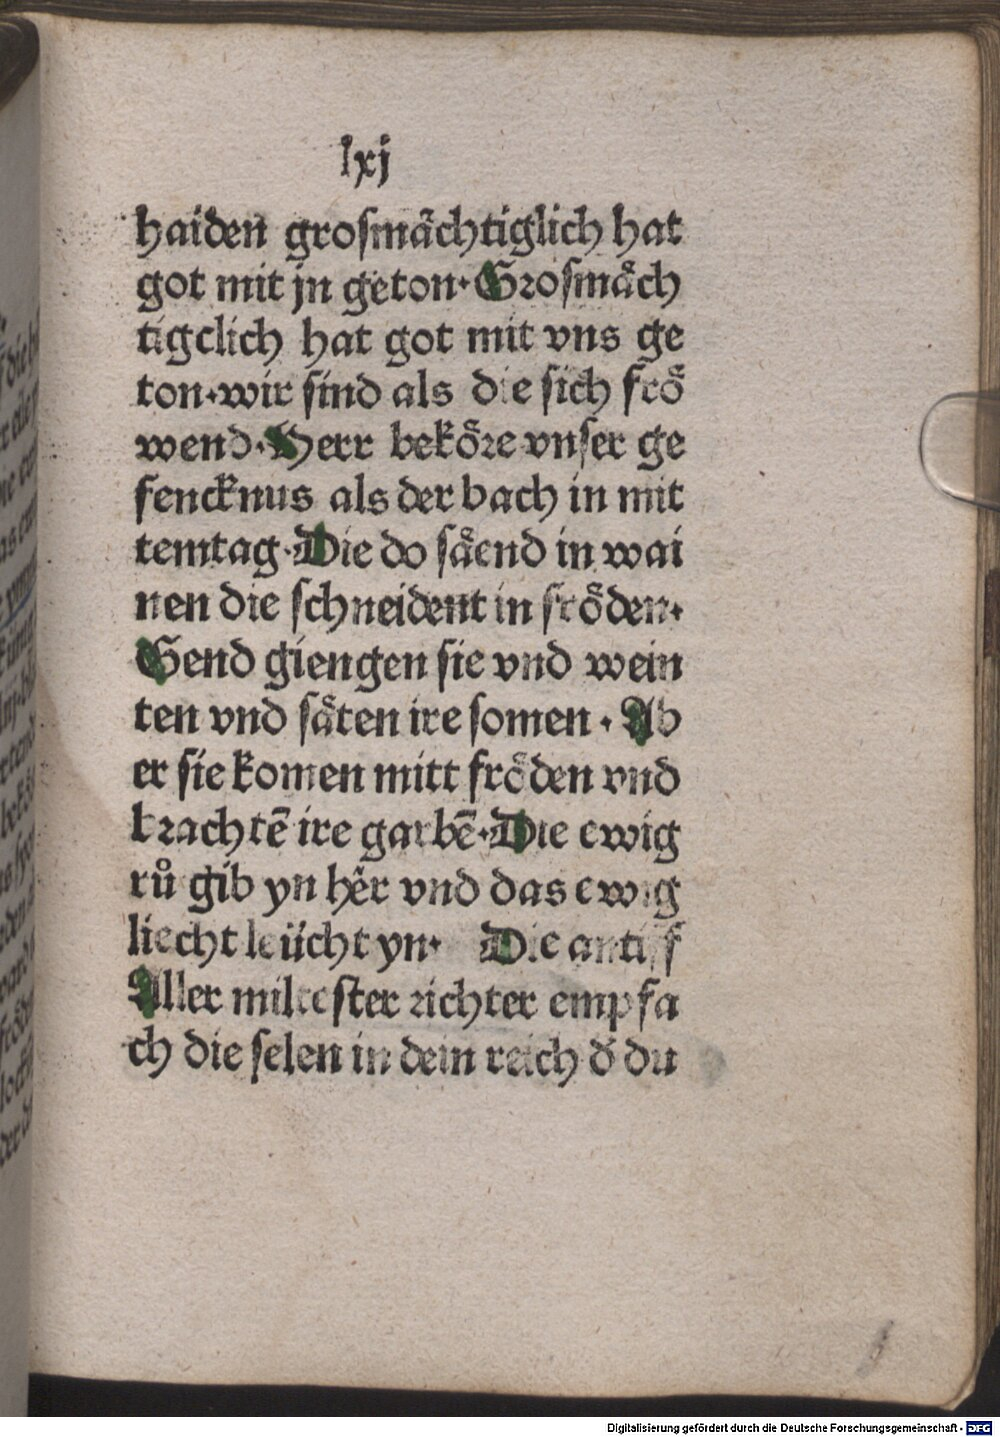 lxj
haiden groſmaͤchtiglich hat
got mit jn geton· Groſmaͤch
tigclich hat got mit vns ge
ton·wir ſind als die ſich froͤ
wend· Herr bekoͤre vnſer ge
fencknus als der bach in mit
temtag· Die do ſaͤend in wai
nen die ſchneident in froͤden·
Gend giengen ſie vnd wein
ten vnd ſaͤten ire ſomen · Ab
er ſie komen mitt froͤden vnd
brachtē ire garbē· Die ewig
rů gib yn heͤr vnd das ewig
liecht leücht yn· Die antiff
Aller milteſter richter empfa
ch die ſelen in dein reich dˀ du
Digitalisierung gefördert durch die Deutsche Forschungsgemeinschaft - DFG